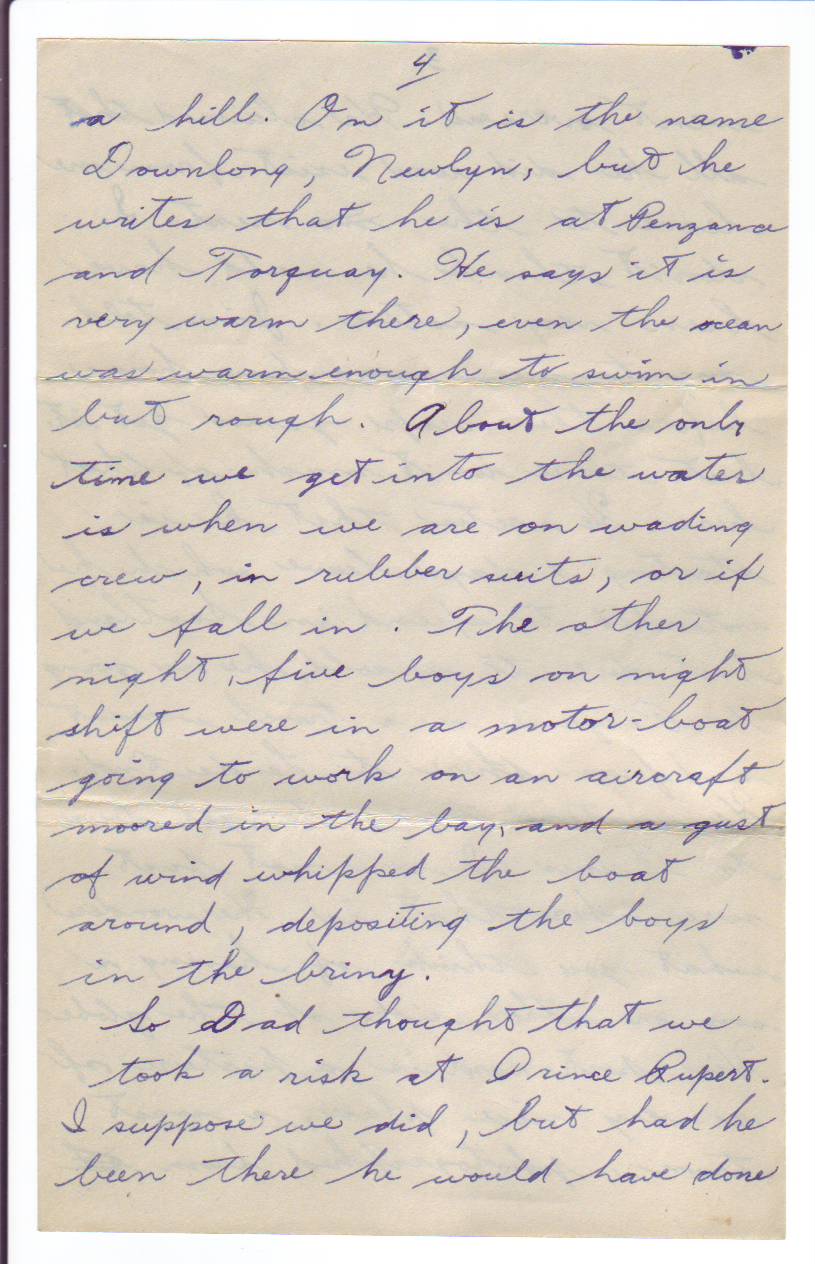 4
a hill. On it is the name
Downlong, Newlyn, but he
writes that he is at Penzance
and Torquay. He says it is
very warm there, even the ocean
was warm enough to swim in
but rough. About the only
time we get into the water
is when we are on wading
crew, in rubber suits, or if
we fall in. The other
night, five boys on night
shift were in a motor-boat
going to work on an aircraft
moored in the bay, and a gust
of wind whipped the boat
around, depositing the boys
in the briny.
So Dad thought that we
took a risk at Prince Rupert.
I suppose we did, but had he
been there he would have done